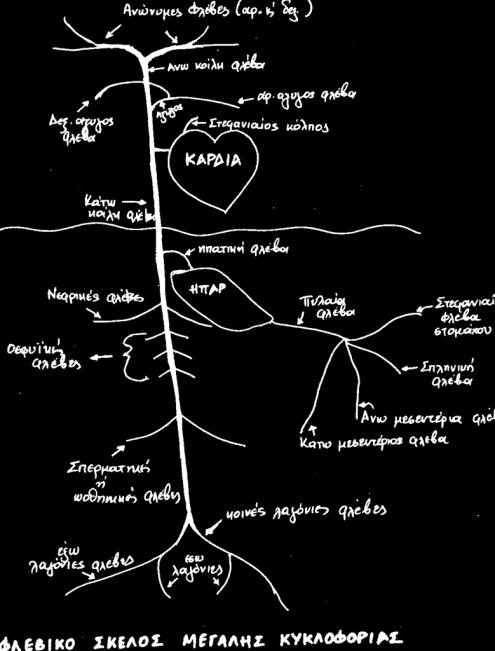 Ανώνυμες φλέβες (αρ. κ' δεξ.)
Ανω κοίλη φλέβα
αρ. αζυγος φλέβα
Αζυγος
Δεξ. αζυγος
φλέβα
Στεφανιαίος κόλπος
ΚΑΡΔΙΑ
Κάτω
κοίλη φλέβα
ηπατική φλέβα
ΗΠΑΡ
Νεφρικές φλέβες
Πυλαία
φλέβα
Στεφανιαί
φλέβα
στομάχου
Οσφυϊκή
φλέβες
Σπληνική
φλέβα
Ανω μεσεντέρια φλέ
Κάτω μεσεντέριος φλέβα
Σπερματική
ή
ωοθηκικές φλέβες
κοινές λαγόνιες φλέβες
έξω
λαγόνιες φλέβες
έσω
λαγόνιες
ΦΛΕΒΙΚΟ ΣΚΕΛΟΣ ΜΕΓΑΛΗΣ ΚΥΚΛΟΦΟΡΙΑΣ